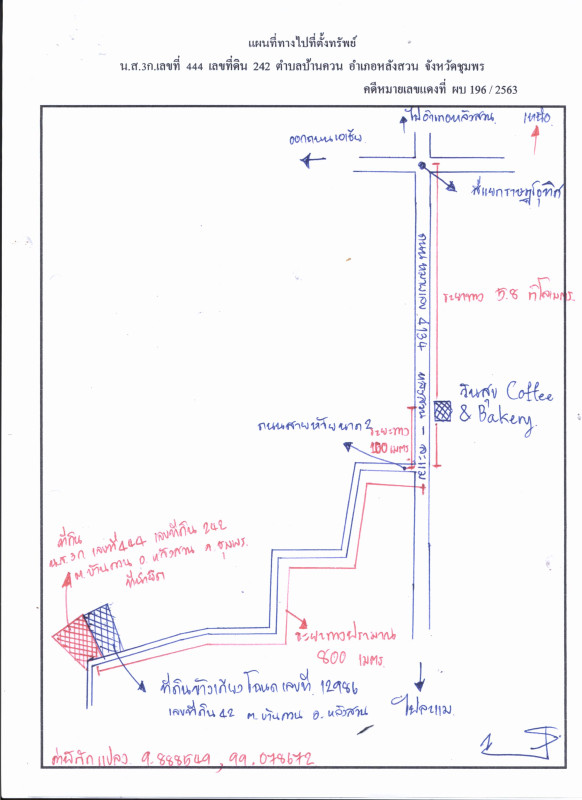 แผนที่ทางไปที่ตั้งทรัพย์
น.ส.3ก.เลขที่ 444 เลขที่ดิน 242 ตำบลบ้านควน อำเภอหลังสวน จังหวัดชุมพร
คดีหมายเลขแดงที่ ผบ 196 / 2563
ไปอำเภอหลังสวน
เหนือ
ออกถนนเอเชีย
สี่แยกราษฎร์อุทิศ
ถนนหมายเลข 4134 หลังสวน - ละแม
ระยะทาง 5.8 กิโลเมตร.
วันสุข Coffee
& Bakery
ถนนสายห้วยนาค 2
ระยะทาง
100 เมตร
ที่ดิน
น.ส.3ก เลขที่ 444 เลขที่ดิน 242
ต.บ้านควน อ.หลังสวน จ.ชุมพร.
ที่พิพาท
ระยะทางประมาณ
800 เมตร.
ที่ดินข้างเคียง โฉนดเลขที่. 12986
เลขที่ดิน 42 ต.บ้านควน อ.หลังสวน
ไปละแม
ค่าพิกัดแปลง 9.888549, 99.078672